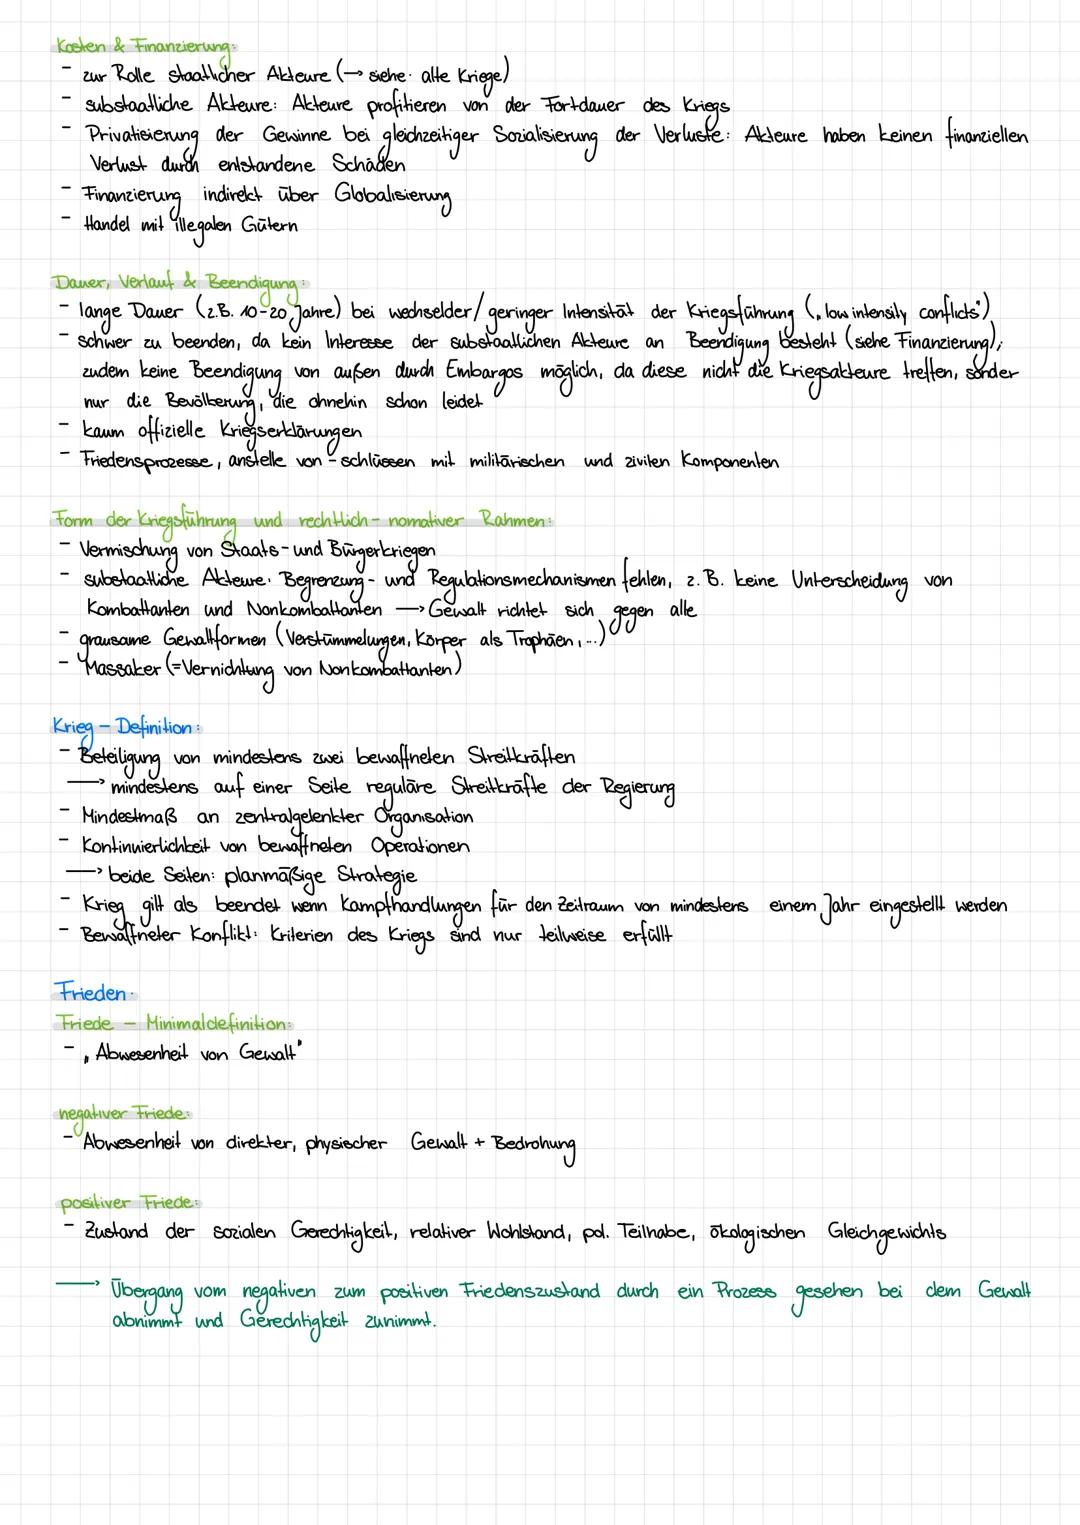 Kosten & Finanzierung:
- zur Rolle staatlicher Akteure (→ siehe: alte Kriege)
- substaatliche Akteure: Akteure profitieren von der Fortdauer des Kriegs
- Privatisierung der Gewinne bei gleichzeitiger Sozialisierung der Verluste: Akteure haben keinen finanziellen
Verlust durch entstandene Schäden
- Finanzierung indirekt über Globalisierung
- Handel mit illegalen Gütern
Dauer, Verlauf & Beendigung:
- lange Dauer (z.B. 10-20 Jahre) bei wechselder/geringer Intensität der Kriegsführung („low intensity conflicts")
- schwer zu beenden, da kein Interesse der substaatlichen Akteure an Beendigung besteht (siehe Finanzierung);
zudem keine Beendigung von außen durch Embargos möglich, da diese nicht die Kriegsakteure treffen, sonder
nur die Bevölkerung, die ohnehin schon leidet
- kaum offizielle Kriegserklärungen
- Friedensprozesse, anstelle von -schlüssen mit militärischen und zivilen Komponenten
Form der Kriegsführung und rechtlich-nomativer Rahmen:
- Vermischung von Staats- und Bürgerkriegen
- substaatliche Akteure: Begrenzung- und Regulationsmechanismen fehlen, z.B. keine Unterscheidung von
Kombattanten und Nonkombattanten → Gewalt richtet sich gegen alle
- grausame Gewaltformen (Verstümmelungen, Körper als Trophäen, ...)
- Massaker (=Vernichtung von Nonkombattanten)
Krieg - Definition:
- Beteiligung von mindestens zwei bewaffneten Streitkräften
→ mindestens auf einer Seite reguläre Streitkräfte der Regierung
- Mindestmaß an zentralgelenkter Organisation
- Kontinuierlichkeit von bewaffneten Operationen
→ beide Seiten: planmäßige Strategie
- Krieg gilt als beendet wenn Kampfhandlungen für den Zeitraum von mindestens einem Jahr eingestellt werden
- Bewaffneter Konflikt: Kriterien des Kriegs sind nur teilweise erfüllt
Frieden:
Friede - Minimaldefinition:
- „Abwesenheit von Gewalt"
negativer Friede:
- Abwesenheit von direkter, physischer Gewalt + Bedrohung
positiver Friede:
- Zustand der sozialen Gerechtigkeit, relativer Wohlstand, pol. Teilhabe, ökologischen Gleichgewichts
→ Übergang vom negativen zum positiven Friedenszustand durch ein Prozess gesehen bei dem Gewalt
abnimmt und Gerechtigkeit zunimmt.